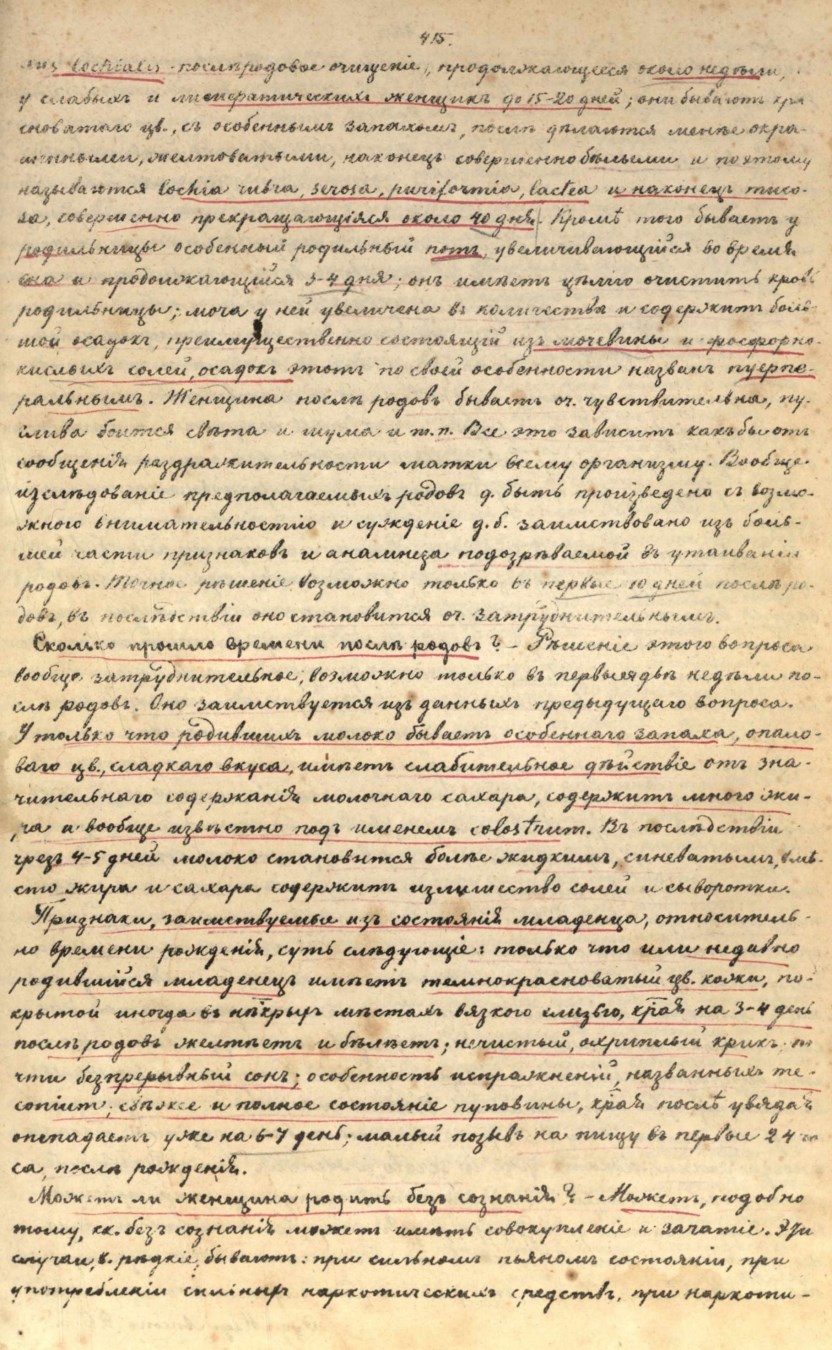 415.
lochialis - послѣродовое очищеніе, продолжающееся около недѣли,
у слабыхъ и лимфратическихъ женщинъ до 15-20 дней; они бываютъ кра
сноватаго цв., съ особеннымъ запахомъ, послѣ дѣлаются менѣе окра-
шенными, желтоватыми, наконецъ совершенно бѣлыми и поэтому
называются lochia rubra, serosa, puriformia, lactea и наконецъ muco-
sa, совершенно прекращающіяся около 40 дня. Кромѣ того бываетъ у
родильницы особенный родильный потъ, увеличивающійся во время
сна и продолжающійся 3-4 дня; онъ имѣетъ цѣлію очистить кровь
родильницы; моча у ней увеличена въ количествѣ и содержитъ боль
шой осадокъ, преимущественно состоящій изъ мочевины и фосфорно-
кислыхъ солей, осадокъ этотъ по своей особенности названъ пуерпе-
ральнымъ. Женщина послѣ родовъ бываетъ оч. чувствительна, пу-
глива боится свѣта и шума и т.п. Все это зависитъ какъ бы отъ
сообщенія раздражительности матки всему организму. Вообще
изслѣдованіе предполагаемыхъ родовъ д. быть произведено съ возмо-
жною внимательностію и сужденіе д.б. заимствовано изъ боль-
шей части признаковъ и анамнеза подозрѣваемой въ утаиваніи
родовъ. Точное рѣшеніе возможно только въ первые 10 дней послѣ ро-
довъ, въ послѣдствіи оно становится оч. затруднительнымъ.
Сколько прошло времени послѣ родовъ? - Рѣшеніе этого вопроса
вообще затруднительное, возможно только въ первыя двѣ недѣли по-
слѣ родовъ. Оно заимствуется изъ данныхъ предыдущаго вопроса.
У только что родившихъ молоко бываетъ особеннаго запаха, опало-
ваго цв., сладкаго вкуса, имѣетъ слабительное дѣйствіе отъ зна-
чительнаго содержанія молочнаго сахара, содержитъ много жи-
ра и вообще извѣстно подъ именемъ colostrum. Въ послѣдствіи
чрезъ 4-5 дней молоко становится болѣе жидкимъ, синеватымъ, вмѣ-
сто жира и сахара содержитъ излишество солей и сыворотки.
Признаки, заимствуемые изъ состоянія младенца, относитель-
но времени рожденія, суть слѣдующіе: только что или недавно
родившійся младенецъ имѣетъ темнокрасноватый цв. кожи, по-
крытой иногда въ нѣкрыр мѣстахъ вязкого слизью, края на 3-4 день
послѣ родовъ желтѣетъ и бѣлѣетъ; нечистый, охриплый крикъ, по
чти безпрерывный сонъ; особенность испражненій, названныхъ me-
conium; свѣжее и полное состояніе пуповины, края послѣ увядая
отпадаетъ уже на 6-7 день; малый позывъ на пищу въ первые 24 ча
са, послѣ рожденія.
Можетъ ли женщина родить безъ сознанія? - Можетъ, подобно
тому, кк. безъ сознанія можетъ имѣть совокупленіе и зачатіе. Эти
случаи, в. рѣдкіе, бываютъ: при сильномъ пьяномъ состояніи, при
употребленіи сильныр наркотическихъ средствъ, при наркоти-